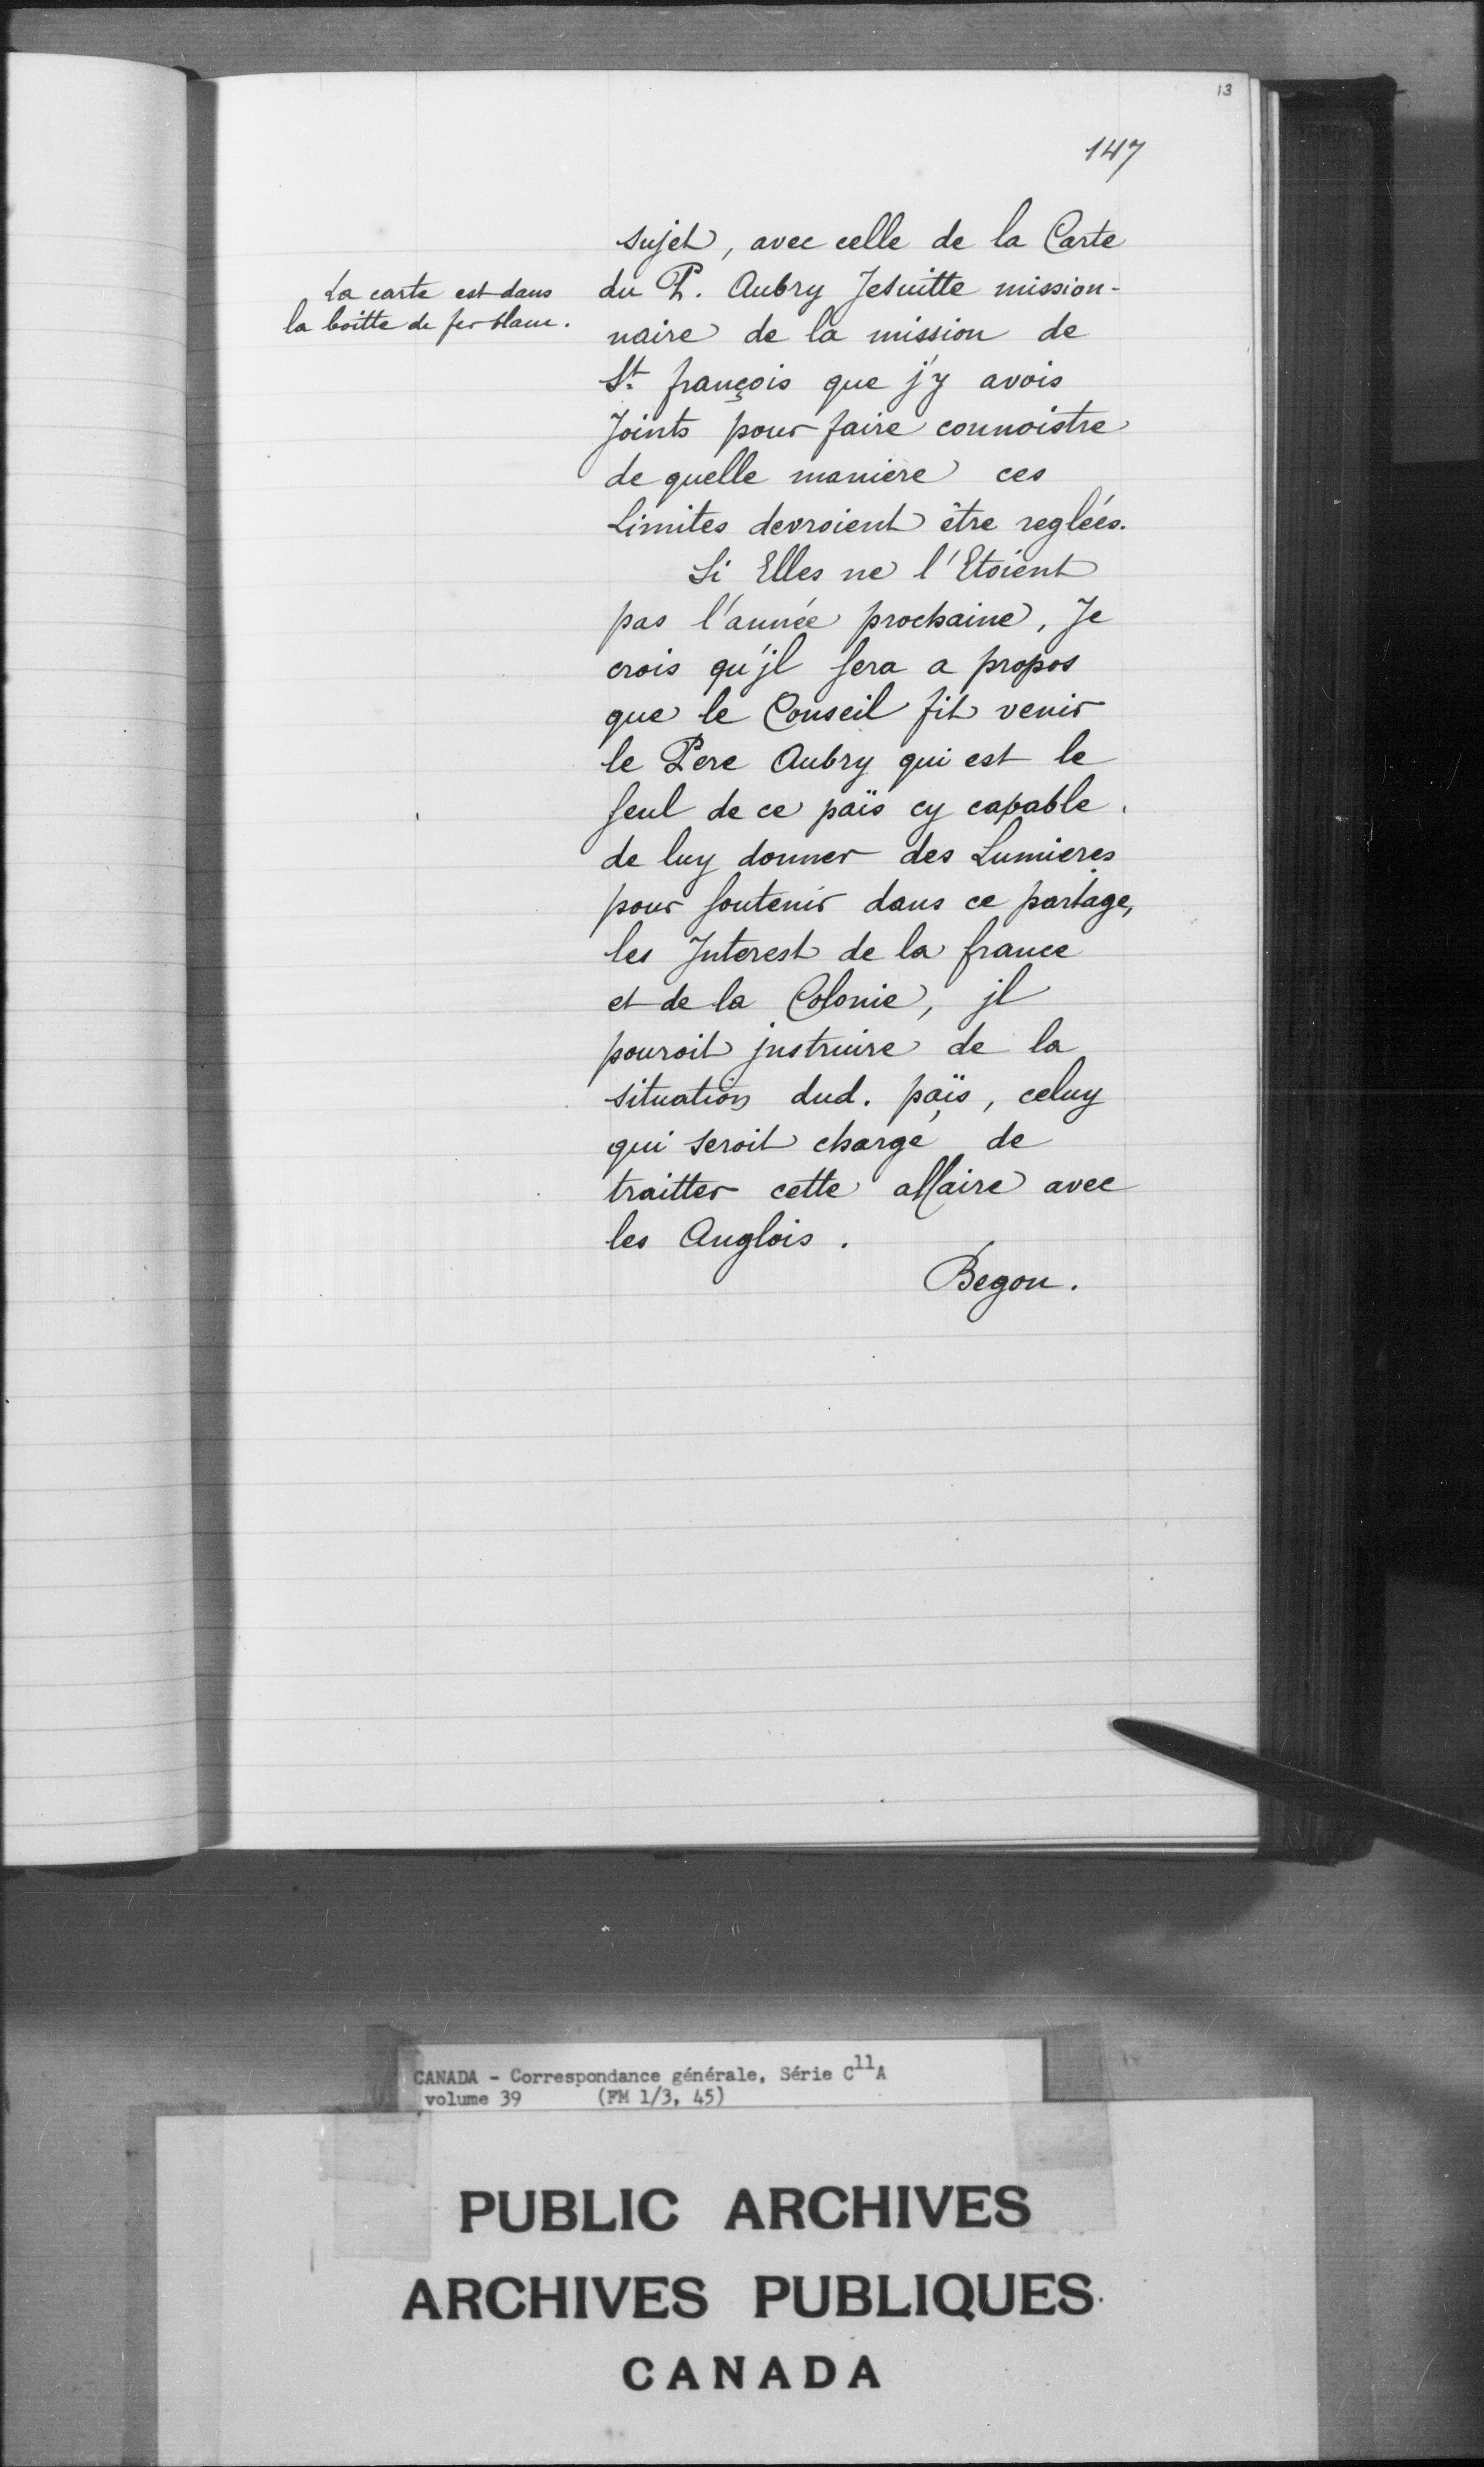 13
147
sujet, avec celle de la Carte
La carte est dans
la boitte de fer blanc.
du P. Aubry Jesuitte mission-
naire de la mission de
St françois que j'y avois
Joints pour faire connoistre
de quelle maniere ces
Limites devroient être reglées.
Si Elles ne l'Etoient
pas l'année prochaine, Je
crois qu'jl sera a propos
que le Conseil fit venir
le Pere Aubry qui est le
seul de ce païs cy capable
de luy donner des Lumieres
pour soutenir dans ce partage,
les Interest de la france
et de la Colonie, jl
pouroit jnstruire de la
situation dud. païs, celuy
qui seroit chargé de
traitter cette affaire avec
les Anglois.
Begon.
CANADA - Correspondance générale, Série C11A
volume 39 (FM 1/3, 45)
PUBLIC ARCHIVES
ARCHIVES PUBLIQUES
CANADA